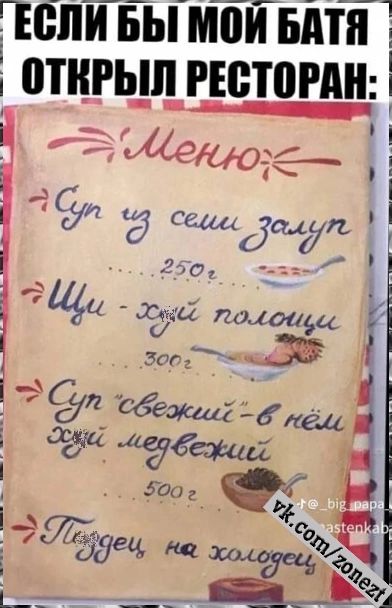 ЕСЛИ БЫ МОЙ БАТЯ
ОТКРЫЛ РЕСТОРАН:
Меню
Суп из семи залуп
250г
Щи - хуй полощи
300г
Суп "свежий" - в нём
хуй медвежий
500г
@_big_papa_
Пиздец на холодец
vk.com/zonezl